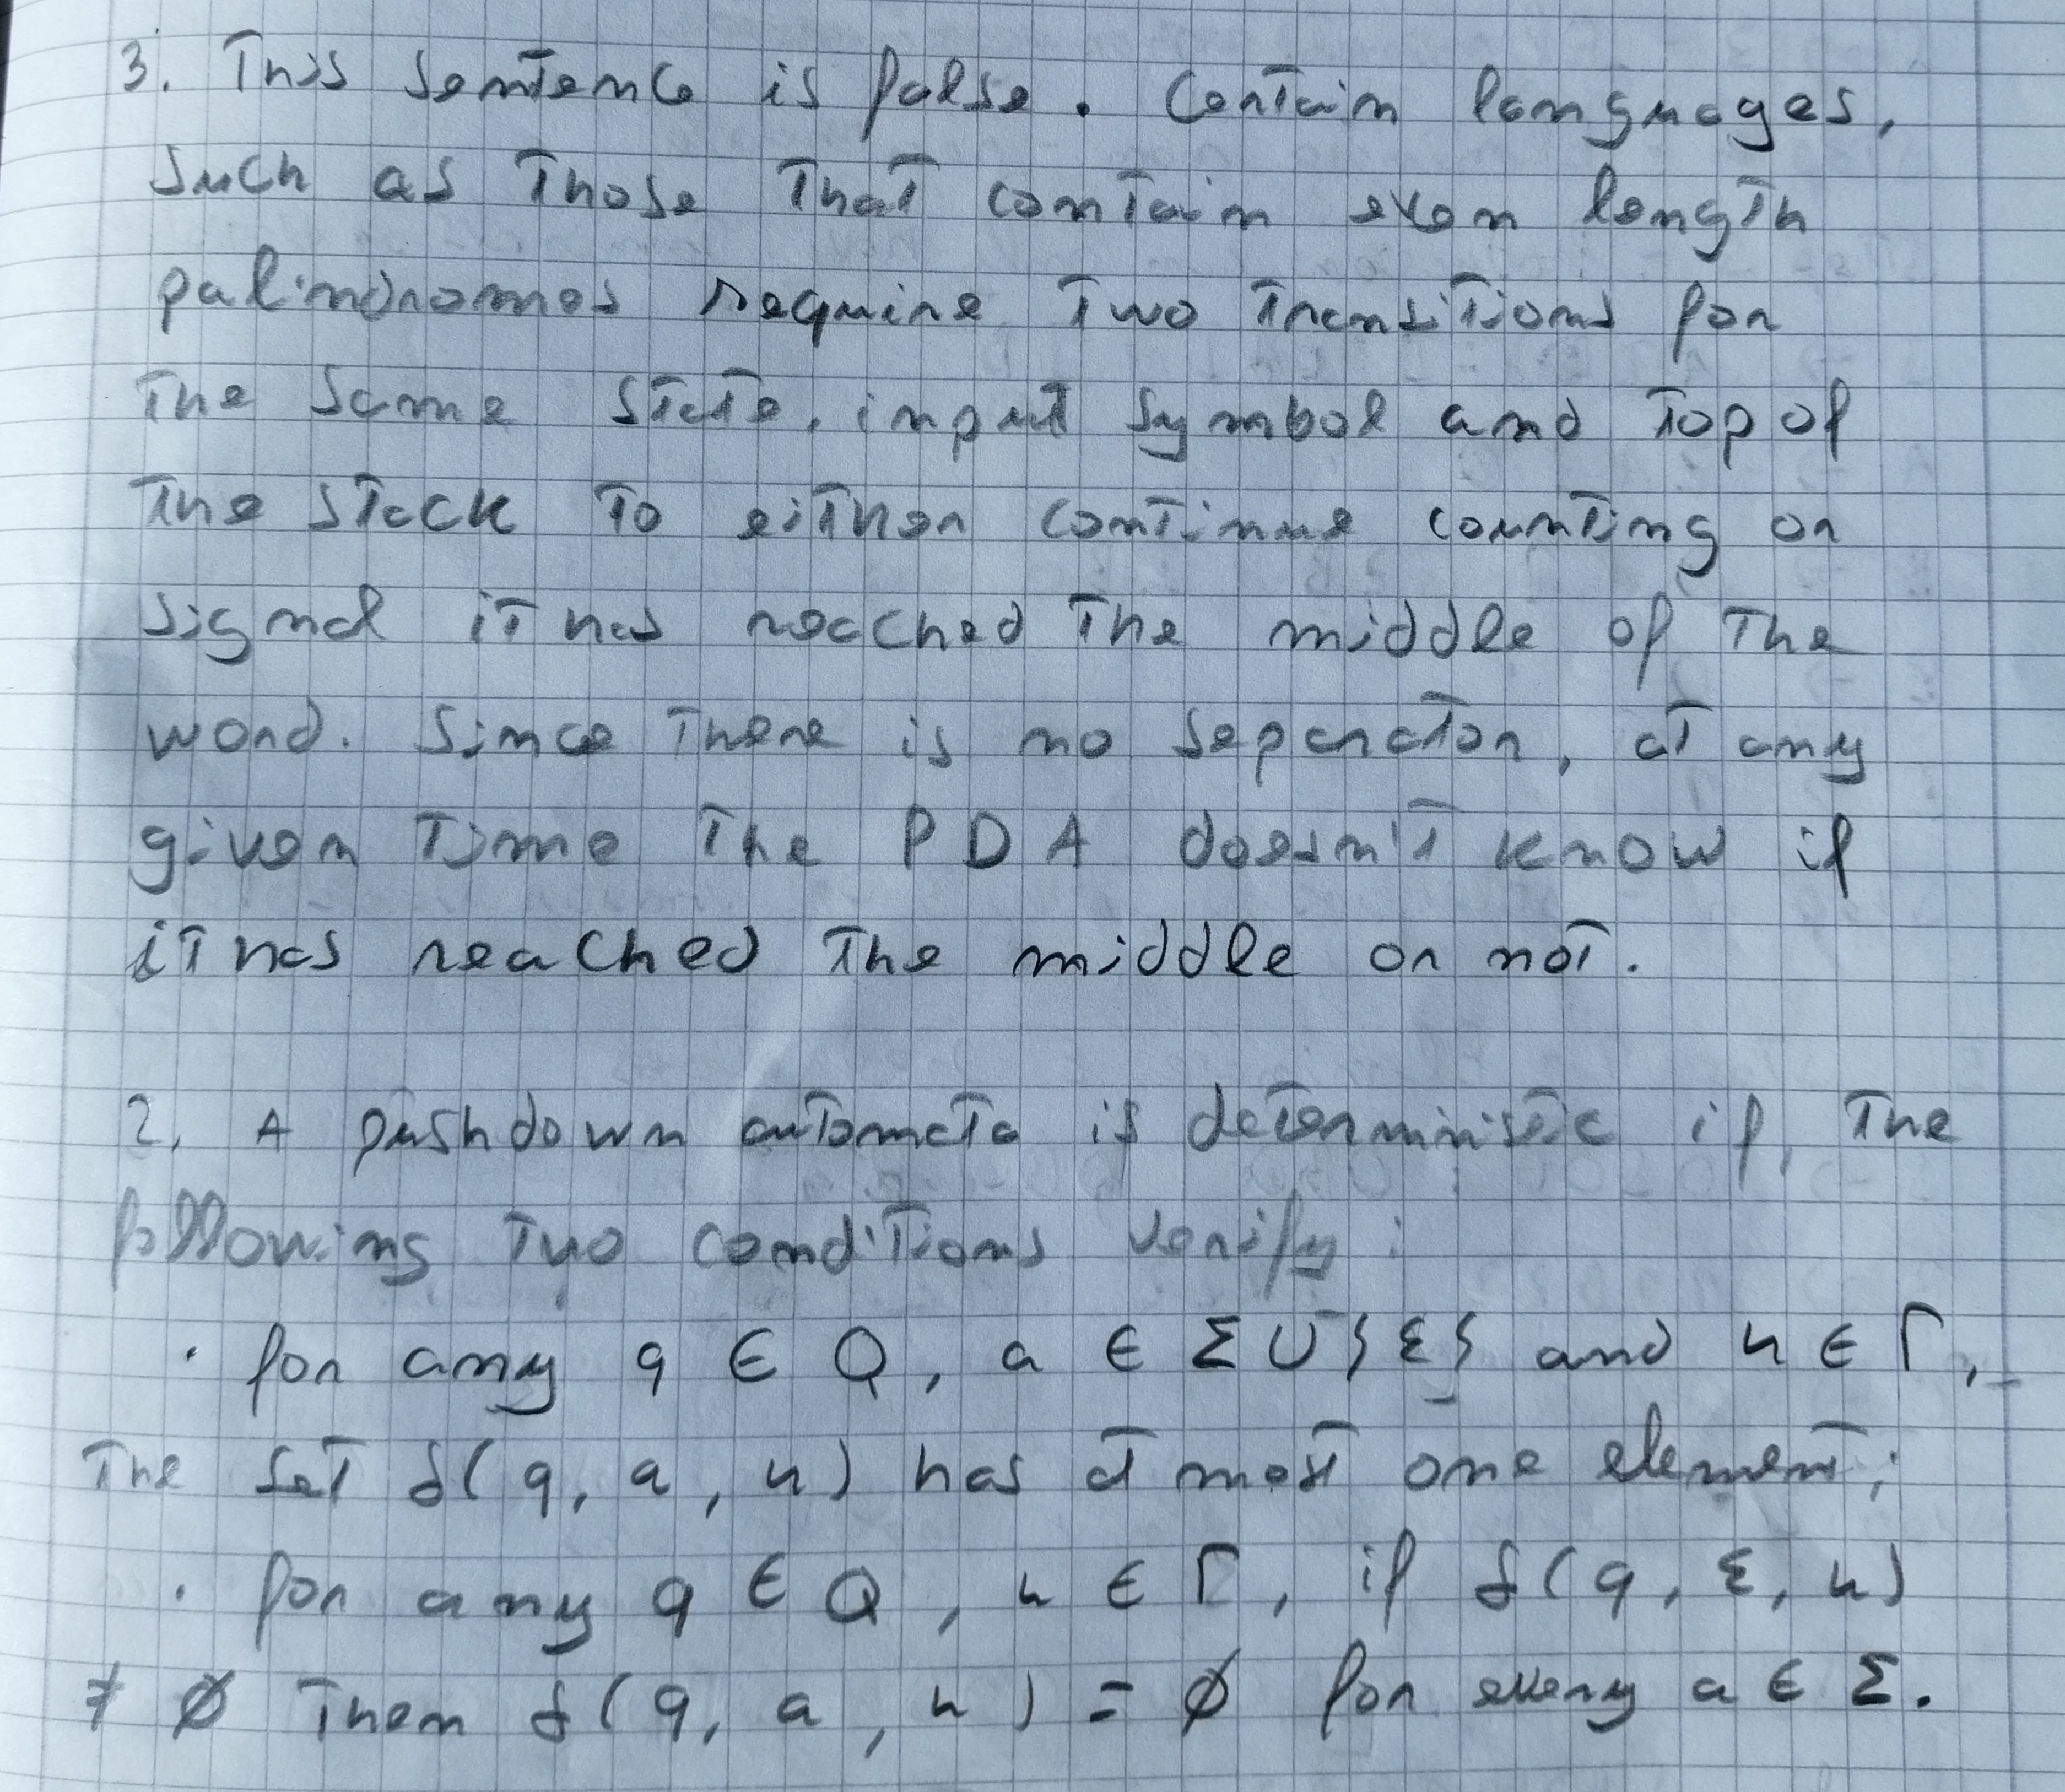 3. This sentence is false. Certain languages,
such as those that contain even length
palindromes require two transitions for
the same state, input symbol and top of
the stack to either continue counting or
signal it has reached the middle of the
word. Since there is no separator, at any
given time the PDA doesn't know if
it has reached the middle or not.
2. A pushdown automata is deterministic if, the
following two conditions verify:
· for any q ∈ Q, a ∈ Σ ∪ {ε} and u ∈ Γ,
the set δ(q, a, u) has at most one element;
· for any q ∈ Q, u ∈ Γ, if δ(q, ε, u)
≠ ∅ then δ(q, a, u) = ∅ for every a ∈ Σ.